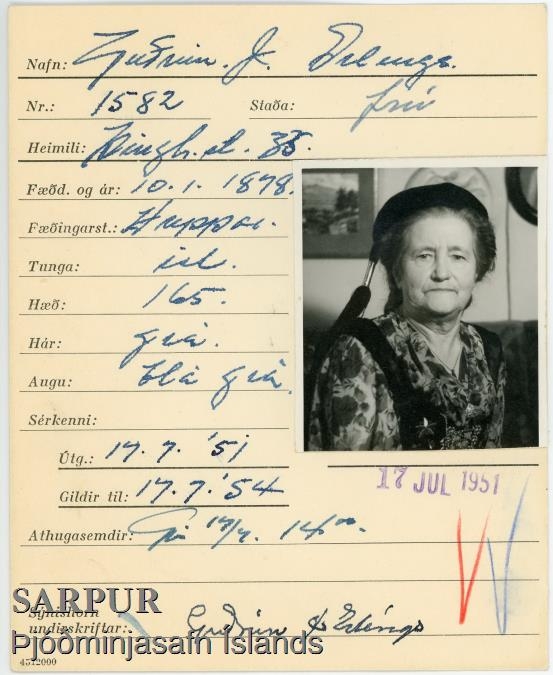 Nafn: Guðrún. J. Erlings.
Nr.: 1582 Staða: frú
Heimili: Þingh.st. 33.
Fæðd. og ár: 10.1. 1878.
Fæðingarst.:
Tunga: isl.
Hæð: 165.
Hár: grá.
Augu: blá grá.
Sérkenni:
Útg.: 17.7.'51
Gildir til: 17.7.'54
17 JUL 1951
Athugasemdir: 17/7. 14⁰⁰.
SARPUR
Sýnishorn
undirskriftar: Guðrún J Erlings
Þjóðminjasafn Íslands
4512000